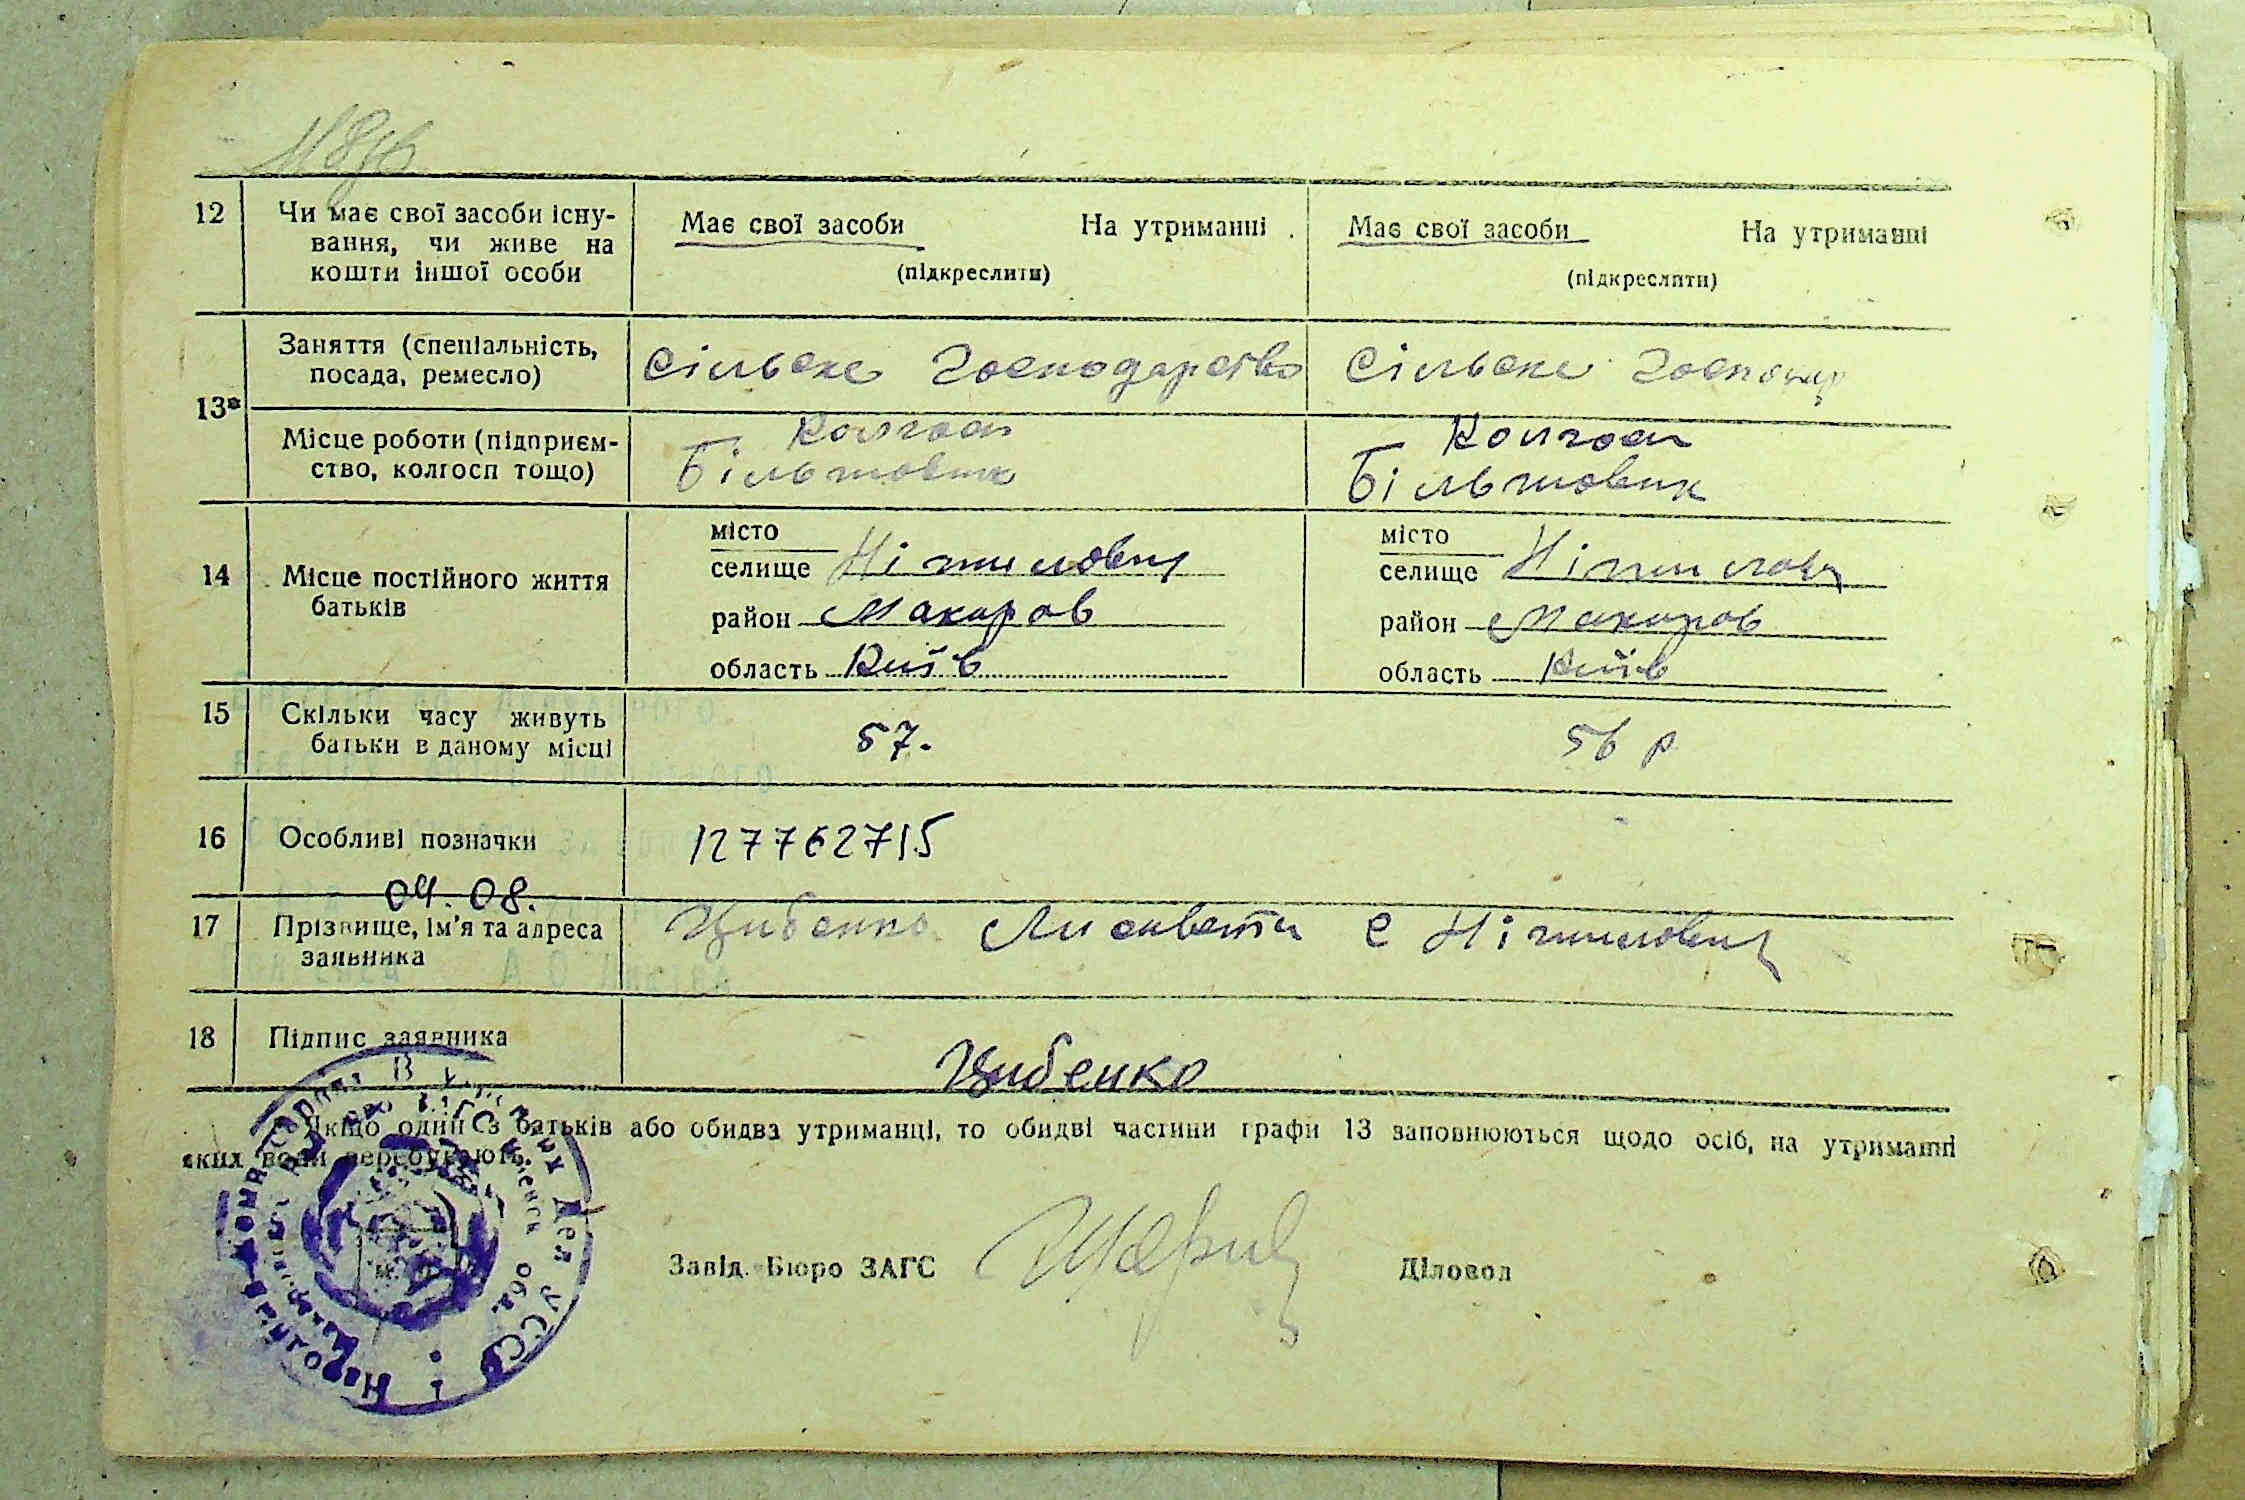 12 Чи має свої засоби існу- Має свої засоби На утриманні Має свої засоби На утриманні
вання, чи живе на
кошти іншої особи (підкреслити) (підкреслити)
13* Заняття (спеціальність, Сільске Господарство Сільске Господар
посада, ремесло)
Місце роботи (підприєм- Колгосп Колгосп
ство, колгосп тощо) Більшовик Більшовик
14 Місце постійного життя місто місто
батьків селище Ніжиловичі селище
район Макаров район Макаров
область Київ область Київ
15 Скільки часу живуть 57. 56 р
батьки в даному місці
16 Особливі позначки 127762715
04.08.
17 Прізвище, ім'я та адреса Цибенко с Ніжиловичі
заявника
18 Підпис заявника Цибенко
Якщо один з батьків або обидва утриманці, то обидві частини графи 13 заповнюються щодо осіб, на утриманні
яких вони перебувають.
Завід. Бюро ЗАГС Діловод